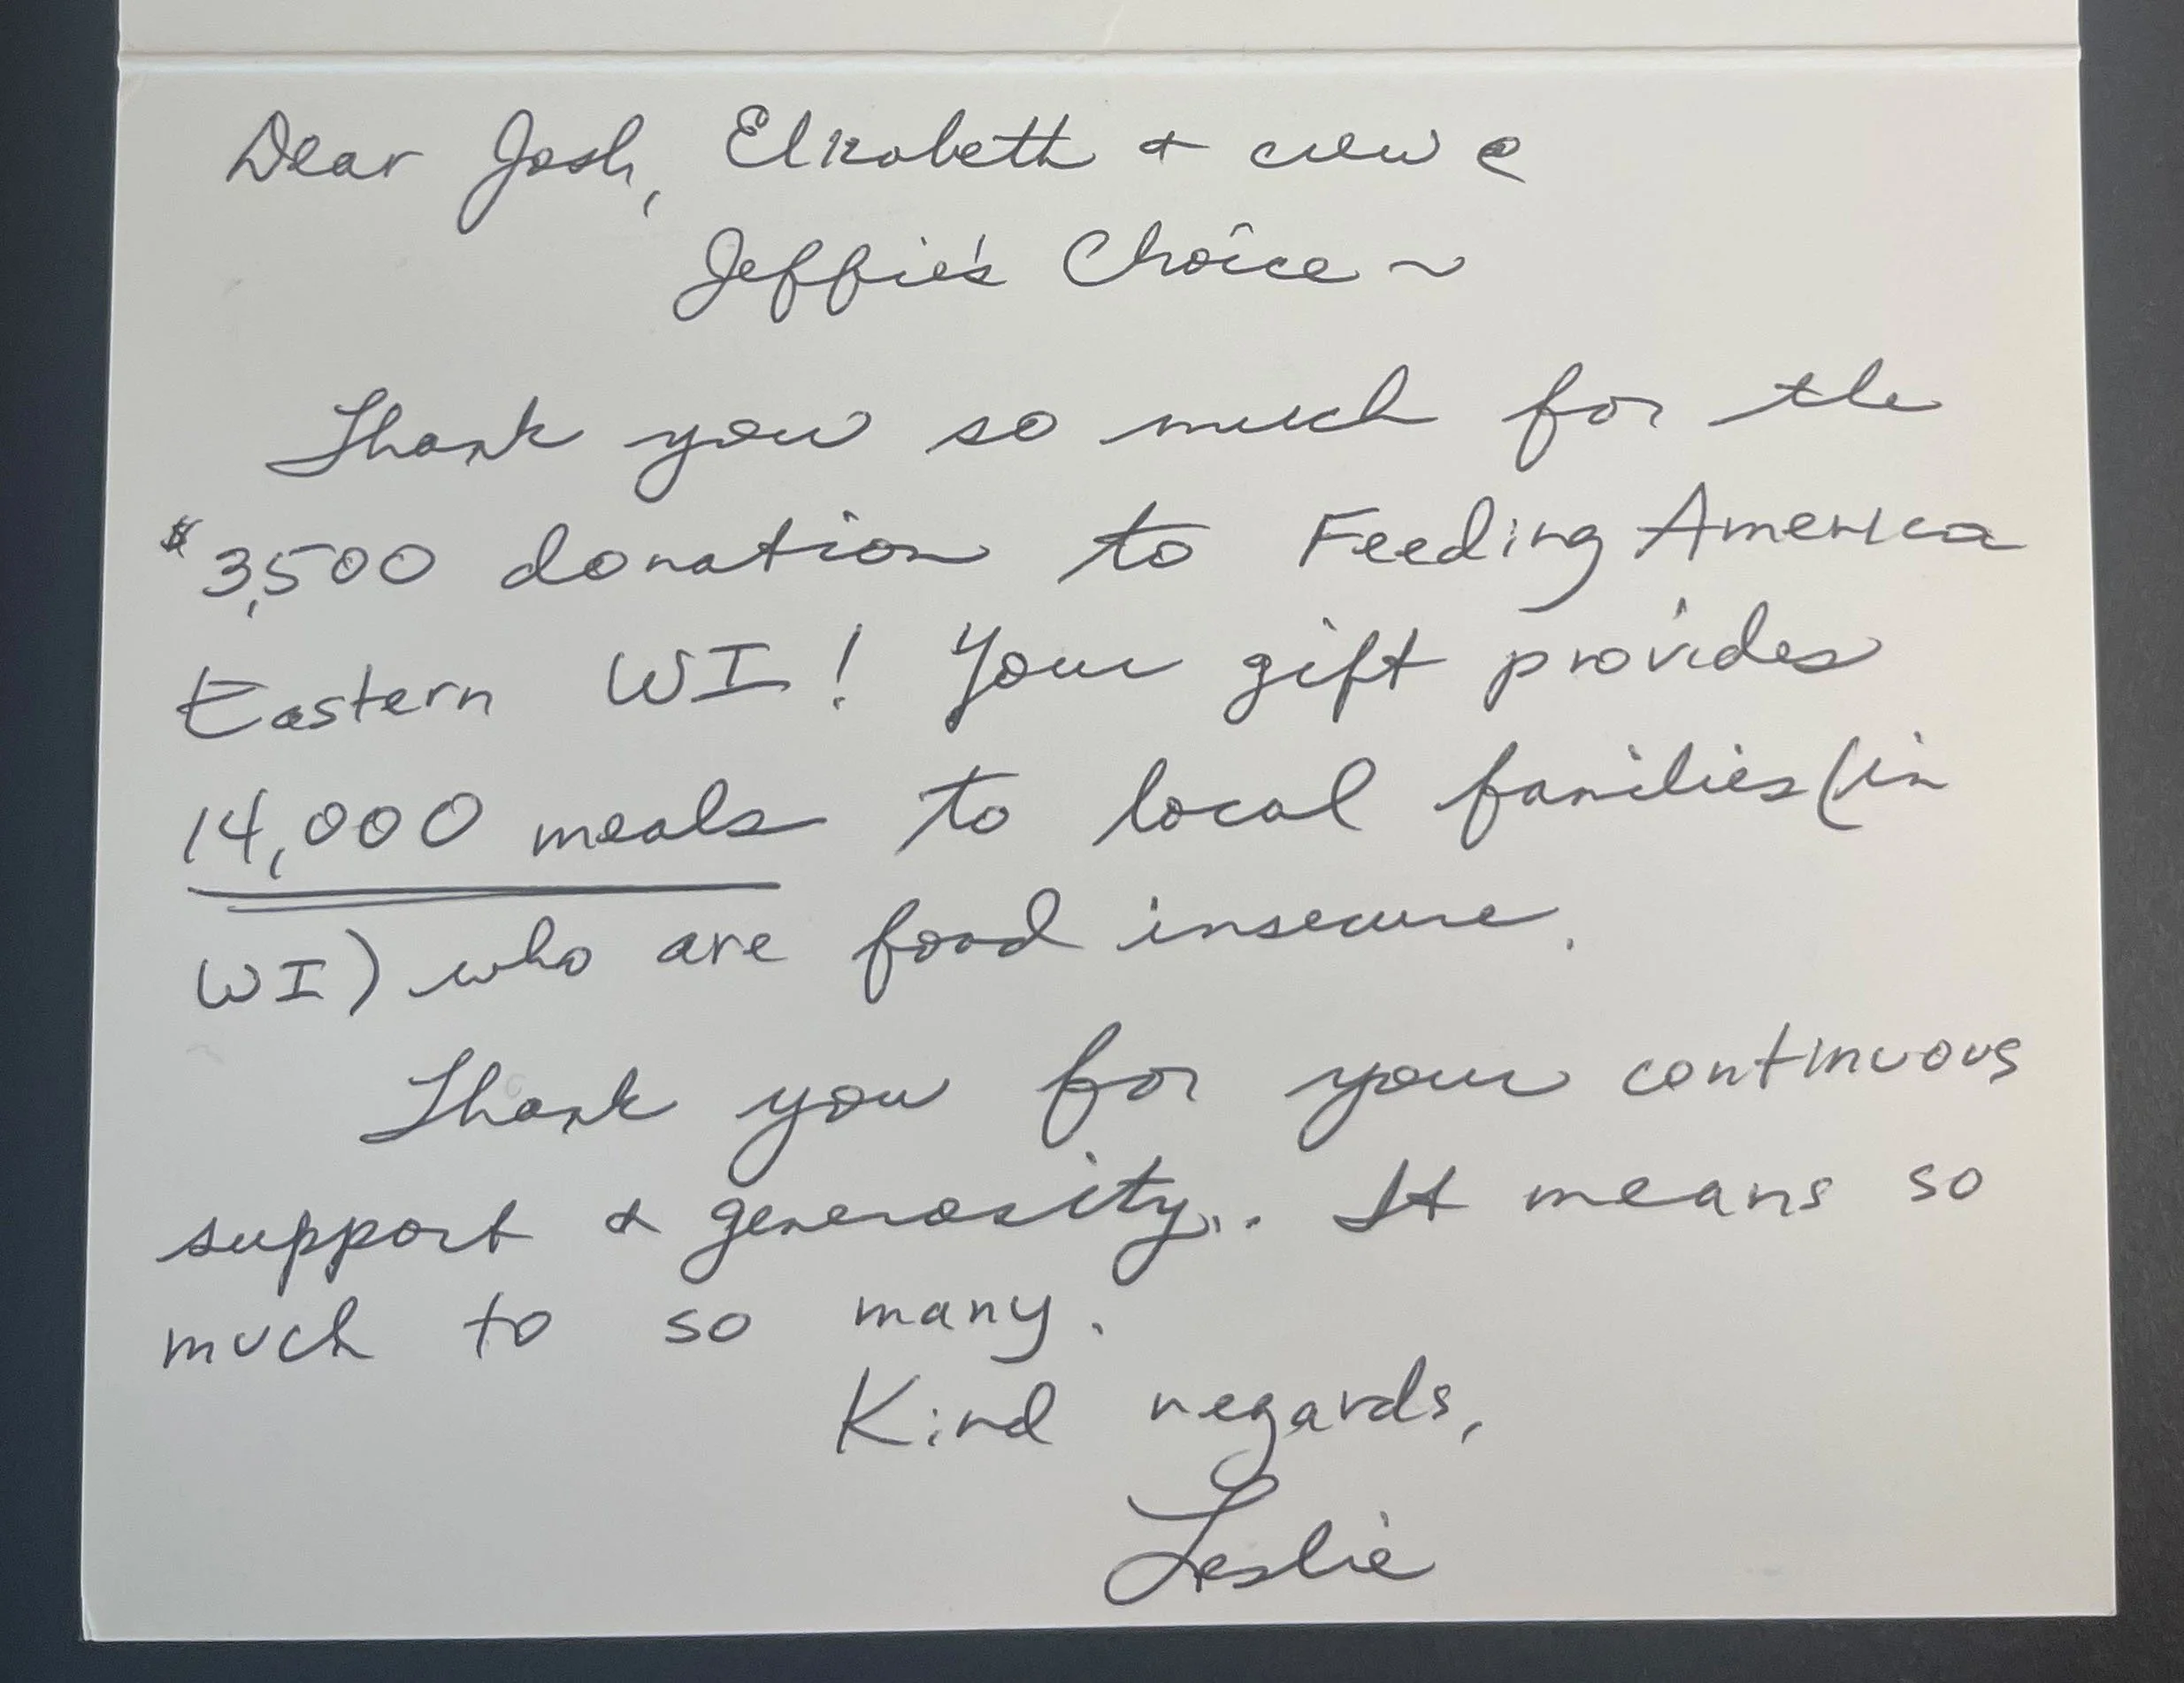 Dear Josh, Elizabeth + crew @
Jeffie's Choice ~
Thank you so much for the
$3,500 donation to Feeding America
Eastern WI! Your gift provides
14,000 meals to local families (in
WI) who are food insecure.
Thank you for your continuous
support & generosity... It means so
much to so many.
Kind regards,
Leslie